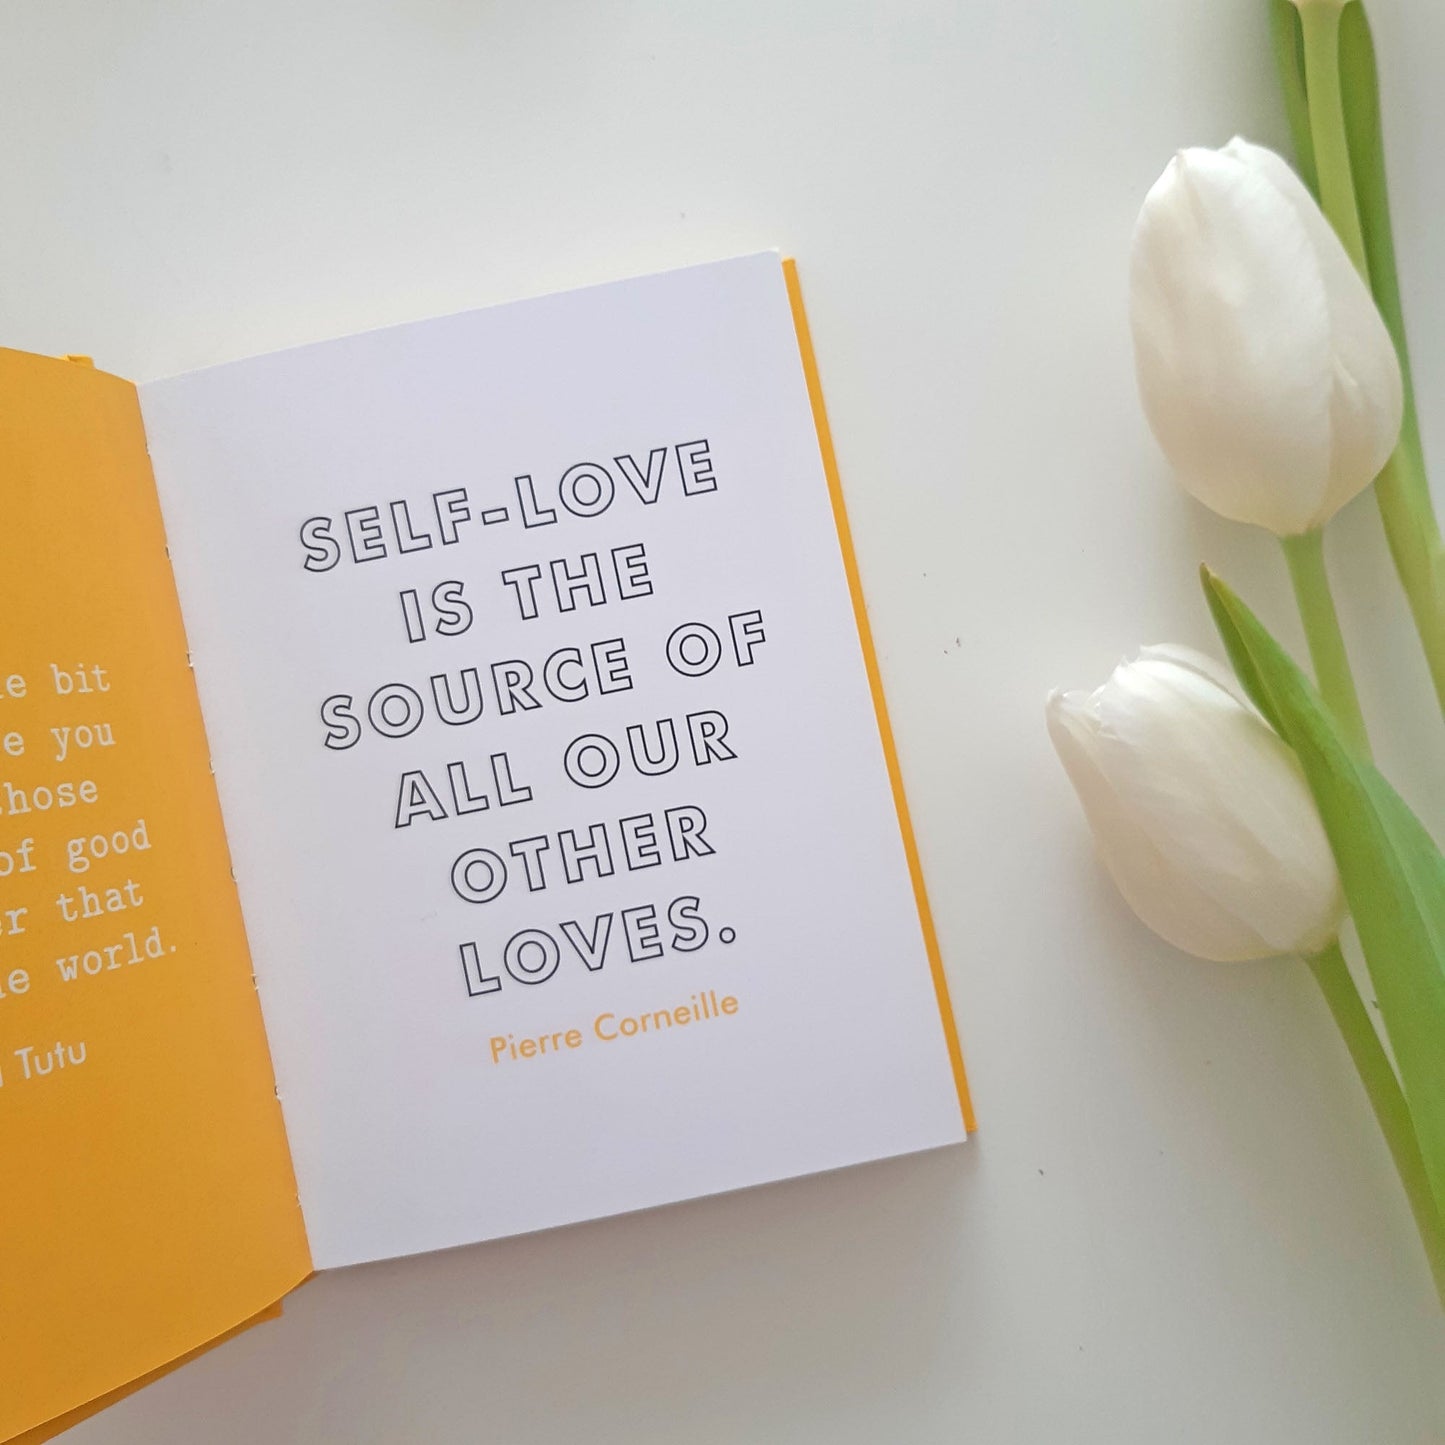 bit
you
of good
that
world.
Tutu
SELF-LOVE
IS THE
SOURCE OF
ALL OUR
OTHER
LOVES.
Pierre Corneille